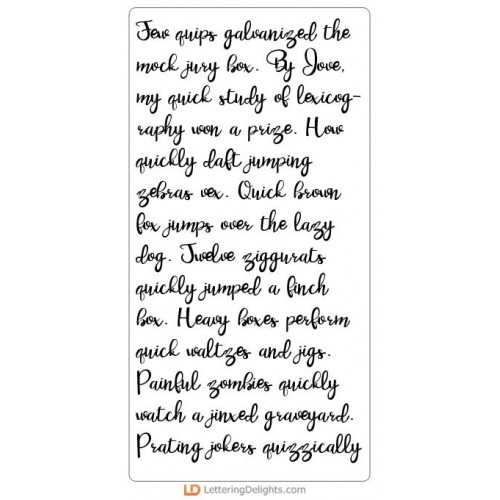 Few quips galvanized the
mock jury box. By Jove,
my quick study of lexicog-
raphy won a prize. How
quickly daft jumping
zebras vex. Quick brown
fox jumps over the lazy
dog. Twelve ziggurats
quickly jumped a finch
box. Heavy boxes perform
quick waltzes and jigs.
Painful zombies quickly
watch a jinxed graveyard.
Prating jokers quizzically
LD LetteringDelights.com